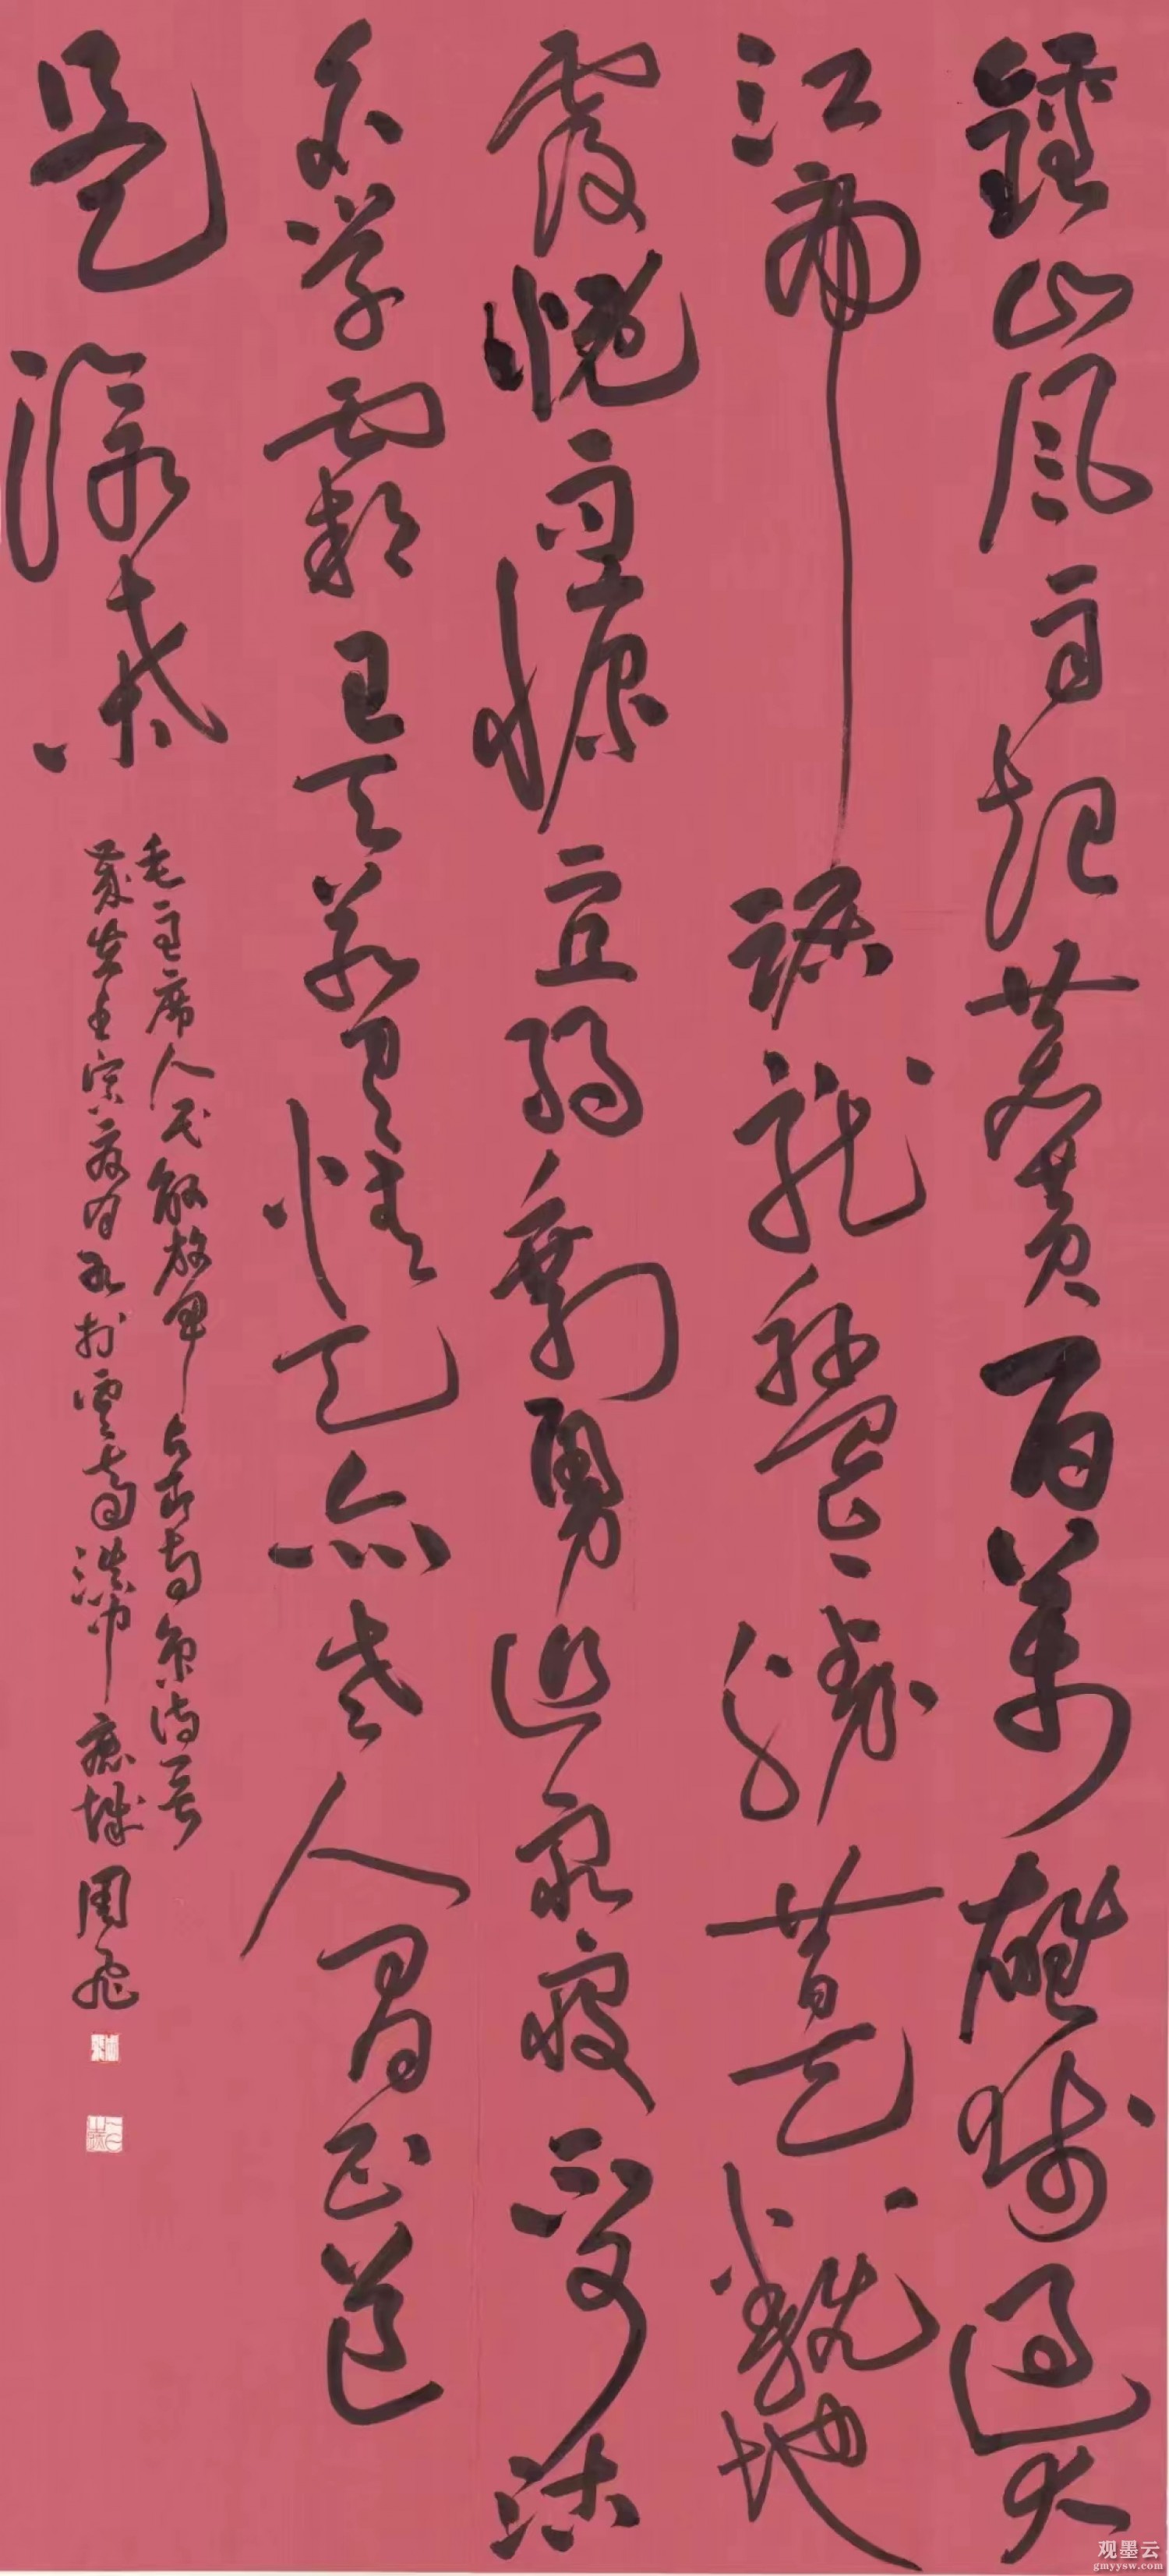 鍾山风雨起苍黄百萬雄师过大
江虎踞龙盘今勝昔天翻地
覆慨而慷宜将剩勇追穷寇不可沽
名学霸王天若有情天亦老人间正道
是滄桑
毛主席人民解放军占领南京诗一首
周飞
观墨云
gmyysw.com